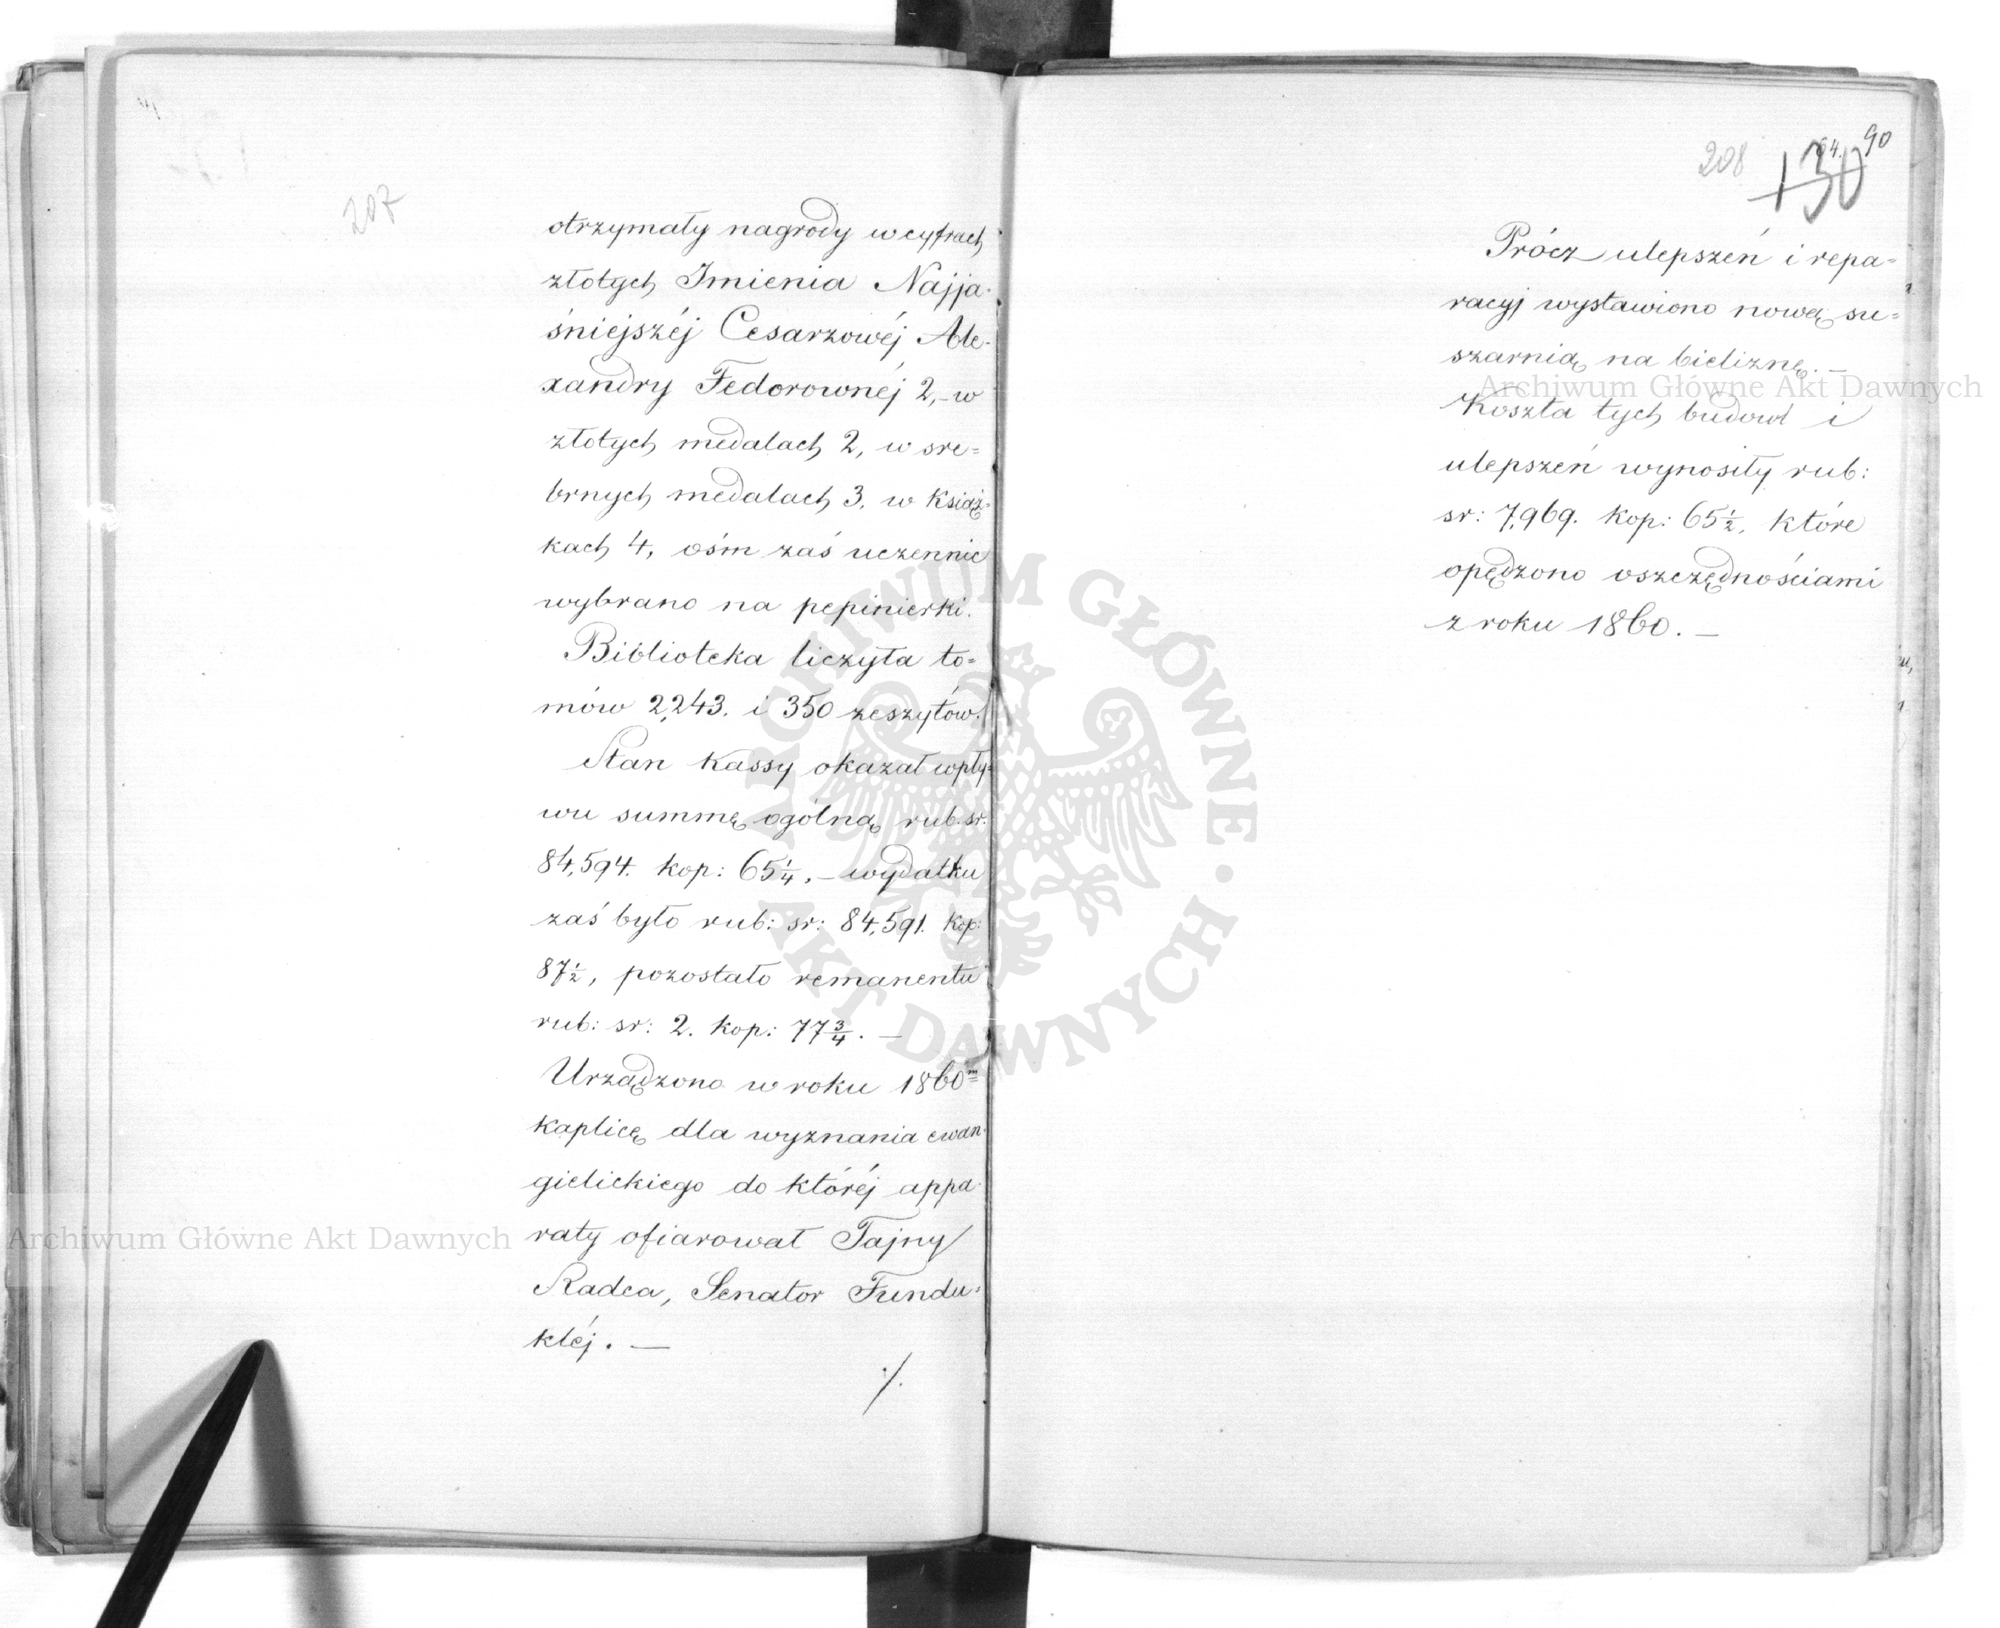 207
otrzymały nagrody w cyfrach
złotych Imienia Najja-
śniejszéj Cesarzowéj Ale-
xandry Fedorownéj 2,- w
złotych medalach 2, w sre=
brnych medalach 3, w książ-
kach 4, ośm zaś uczennic
wybrano na pepinierki.
Biblioteka liczyła to=
mów 2,243. i 350 zeszytów.
Stan kassy okazał wpły-
wu summę ogólną rub. sr.
84,594. kop: 65 1/4, – wydatku
zaś było rub: sr: 84,591. kop:
87 1/2, pozostało remanentu
rub: sr: 2. kop: 77 3/4. —
Urządzono w roku 1860m
kaplicę dla wyznania ewan-
gielickiego do któréj appa-
raty ofiarował Tajny
Radca, Senator Fundu-
kléj. —
./.
208 130 94. 90
Prócz ulepszeń i repa=
racyj wystawiono nową su=
szarnią na bieliznę. —
Koszta tych budowl i
ulepszeń wynosiły rub:
sr: 7,969. kop: 65 1/2, które
opędzono oszczędnościami
z roku 1860. —
Archiwum Główne Akt Dawnych
Archiwum Główne Akt Dawnych
ARCHIWUM GŁÓWNE • AKT DAWNYCH •